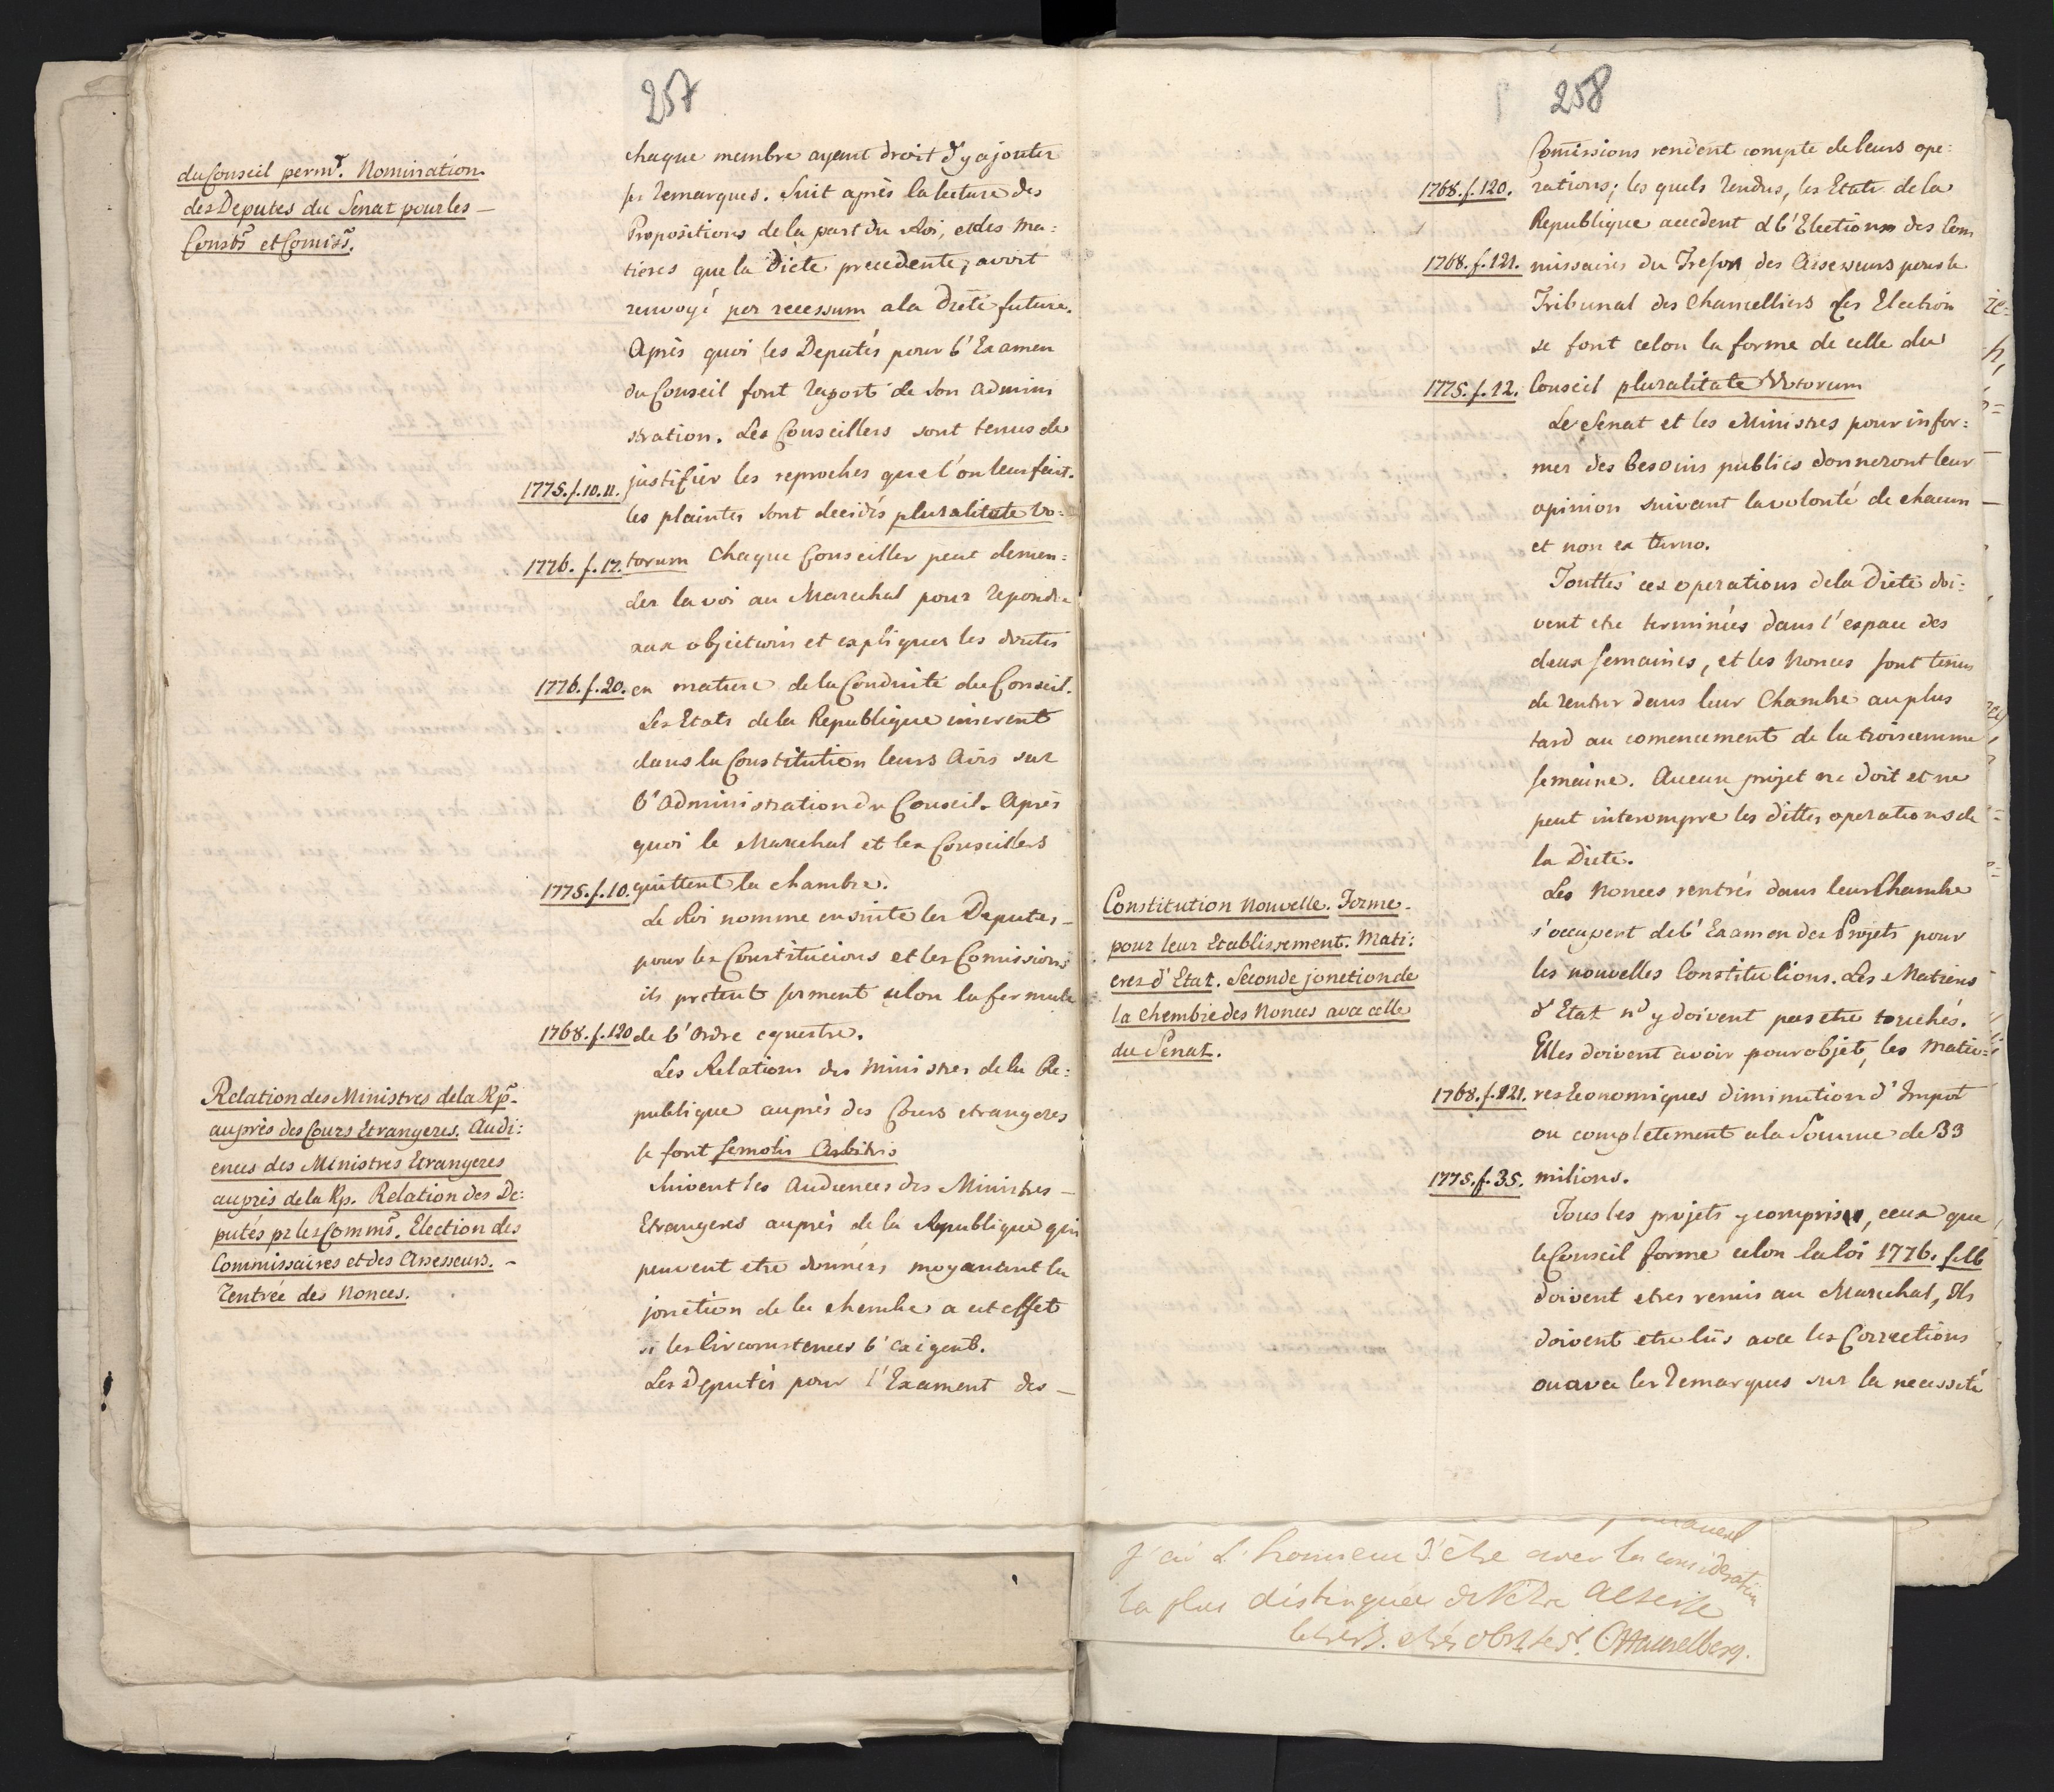 257
du Conseil perm̃t. Nomination
des Deputés du Senat pour les —
Constõ et Comissõ.
chaque membre ayant droit d'y ajouter
ses remarques. Suit après la lecture des
Propositions de la part du Roi, et des ma:
tieres que la Diete precedente, avoit
renvoyé per recessum a la Diete future.
Après quoi les Deputés pour l'Examen
du Conseil font raport de son admini
stration. Les Conseillers sont tenus de
justifier les reproches que l'on leur fait.
1775. f. 10. 11.
les plaintes sont decidés pluralitate vo:
1776. f. 17. torum Chaque Conseiller peut demen:
der la voi au Marechal pour repondre
aux objections et expliquer les doutes
1776. f. 20. en matiere de la Conduite du Conseil.
Les Etats de la Republique inserent
dans la Constitution leurs Avis sur
l'Administration du Conseil. Après
quoi le Marechal et les Conseillers
1775. f. 10. quittent la chambre.
Le Roi nomme ensuite les Deputés —
pour les Constitucions et les Comissions
ils pretent serment selon la formule
1768. f. 120 de l'Ordre equestre.
Relation des Ministres de la Rp̃.
auprès des Cours Etrangeres. Audi:
ences des Ministres Etrangeres
auprès de la Rp. Relation des De:
putés pr les Comms̃. Election des
Commissaires et des Assesseurs. —
rentrée des Nonces.
Les Relations des Ministres de la Re:
publique auprès des Cours etrangeres
se font semotis Arbitris
Suivent les Audiences des Ministres —
Etrangeres auprès de la Republique qui
peuvent etre donnéés moyenant la
jonction de la chembre a cet effet
si les Circomstences l'exigent.
Les Deputés pour l'Exament des —
258
Comissions rendent compte de leurs ope:
1768. f. 120. rations; les quels rendus, les Etats de la
Republique accedent à l'Election des Com
1768. f. 121. missaires du Tresor des Assesseurs pour le
Tribunal des Chancelliers les Election
se font celon la forme de celle du
1775. f. 12. Conseil pluralitate Votorum
Le Senat et les Ministres pour infor:
mer des besoins publics donneront leur
opinion suivant la volonté de chacun
et non ex turno.
Touttes ces operations de la Diete doi:
vent etre terminées dans l'espace des
deux semaines, et les Nonces sont tenus
de rentrer dans leur Chambre au plus
tard au comencement de la troisiemme
semaine. Aucun projet ne doit et ne
peut interompre les dittes operations de
la Diete.
Constitution Nouvelle. Forme
pour leur Etablissement. Mati:
eres d'Etat. Seconde jonction de
la Chembre des Nonces avec celle
du Senat.
Les Nonces rentrés dans leur Chambre
s'occupent de l'Examen des Projets pour
les nouvelles Constitutions. Les Matieres
d'Etat n'y doivent pas etre touchés.
Elles doivent avoir pour objet, les Matie:
1768. f. 121. res Economiques diminution d'Impot
ou completement a la Somme de 33
1775. f. 35. milions.
Tous les projets y compris, ceux que
le Conseil forme celon la loi 1776. f. 16
doivent etres remis au Marechal, Ils
doivent etre lüs avec les Corrections
ou avec les remarques sur la necessité
J'ai l'honneur d'être avec la consideration
la plus distinguée de Votre Altesse